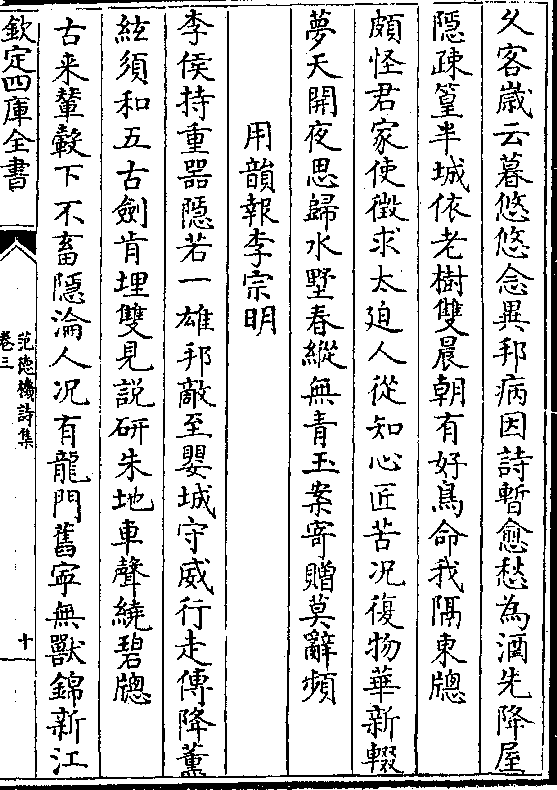 久客歲云暮悠悠念異邦病因詩暫愈愁為酒先降屋
隠疎篁半城依老樹雙晨朝有好鳥命我隔東牕
頗怪君家使徴求太廹人從知心匠苦况復物華新輟
夢天開夜思歸水墅春縱無青玉案寄贈莫辭頻
用韻報李宗明
李侯持重器隠若一雄邦敵至嬰城守威行走傳降薫
絃須和五古劍肯埋雙見説研朱地車聲繞碧牕
古来輦轂下不畜隠淪人况有龍門舊寜無獸錦新江
欽定四庫全書
范徳機詩集
卷三
十